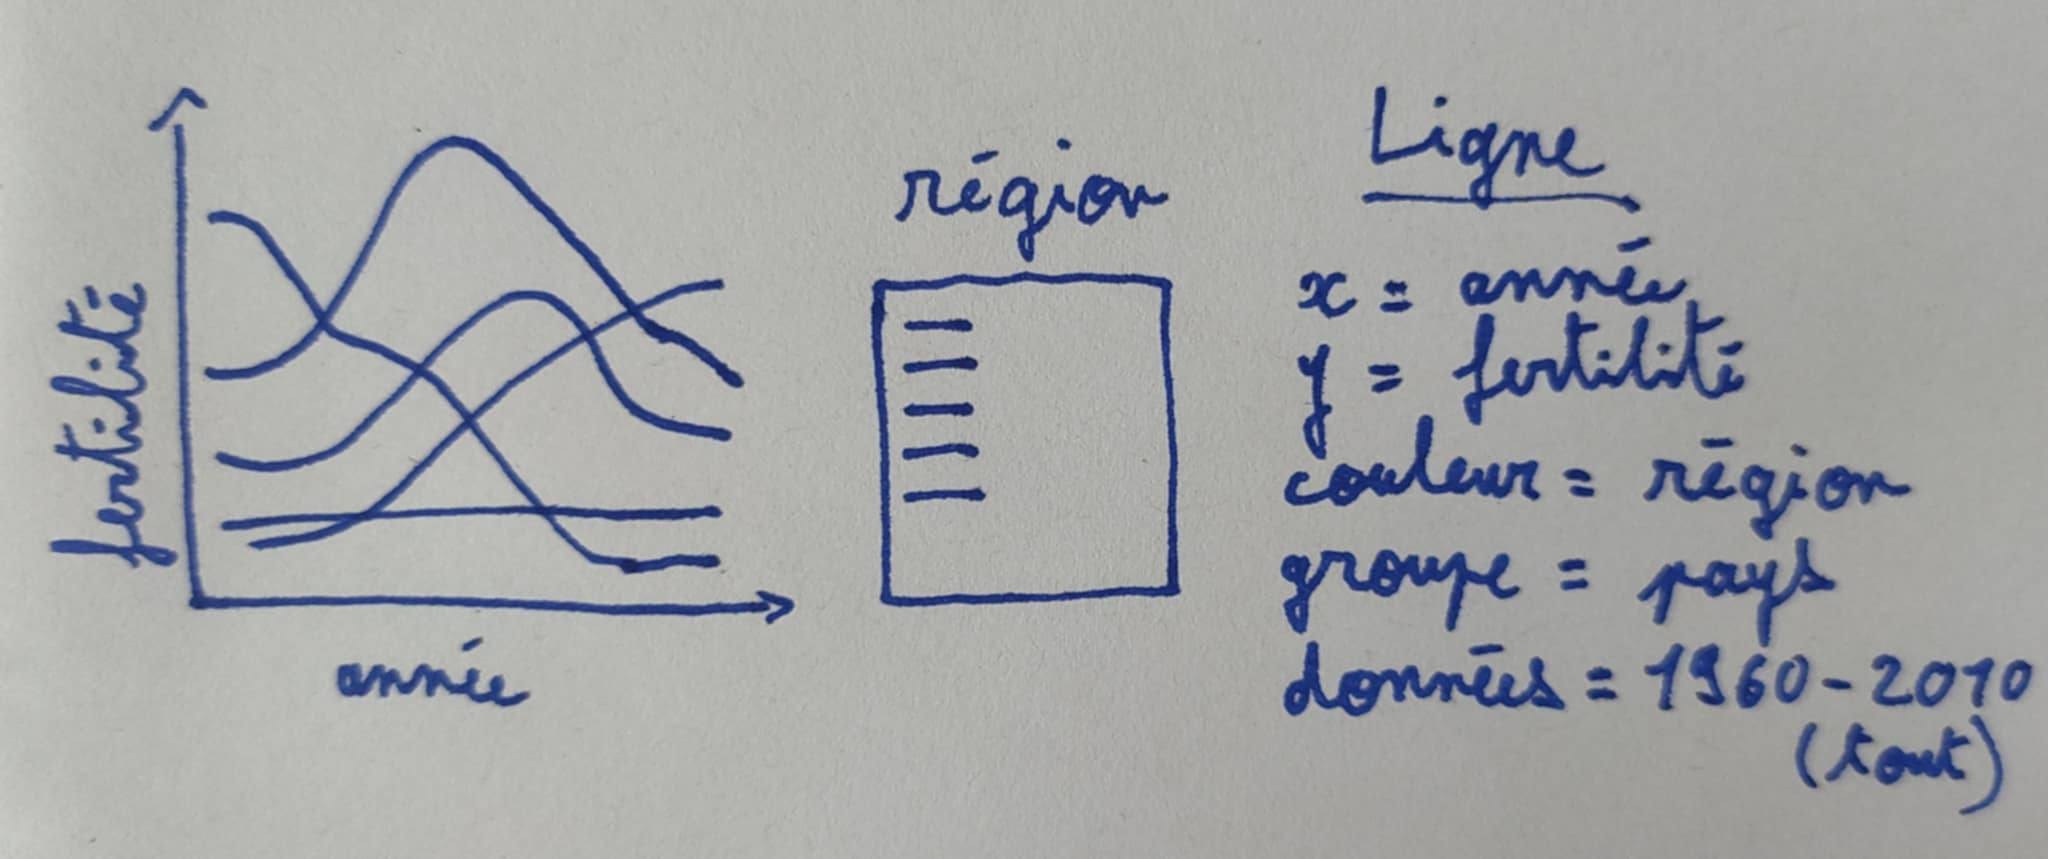 fertilité
année
région
Ligne
x = année
y = fertilité
couleur = région
groupe = pays
données = 1960-2010
(tout)